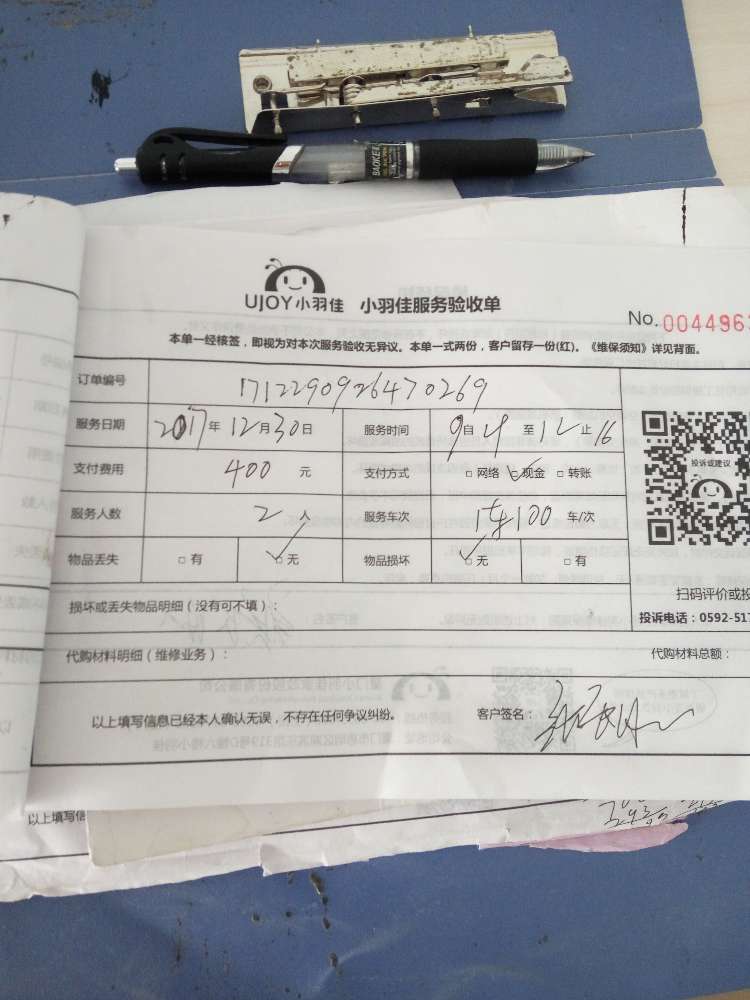 BAOKE
UJOY小羽佳 小羽佳服务验收单
No. 0044963
本单一经核签，即视为对本次服务验收无异议。本单一式两份，客户留存一份(红)。《维保须知》详见背面。
订单编号 171229092647 0269
服务日期 2017年12月30日 服务时间 9自 至12止16
支付费用 400 元 支付方式 □ 网络 □ 现金 □ 转账
投诉或建议
服务人数 2人 服务车次 100 车/次
物品丢失 □ 有 □ 无 物品损坏 □ 无 □ 有
扫码评价或投
损坏或丢失物品明细（没有可不填）：
投诉电话：0592-517
代购材料明细（维修业务）： 代购材料总额：
以上填写信息已经本人确认无误，不存在任何争议纠纷。 客户签名：
以上填写信